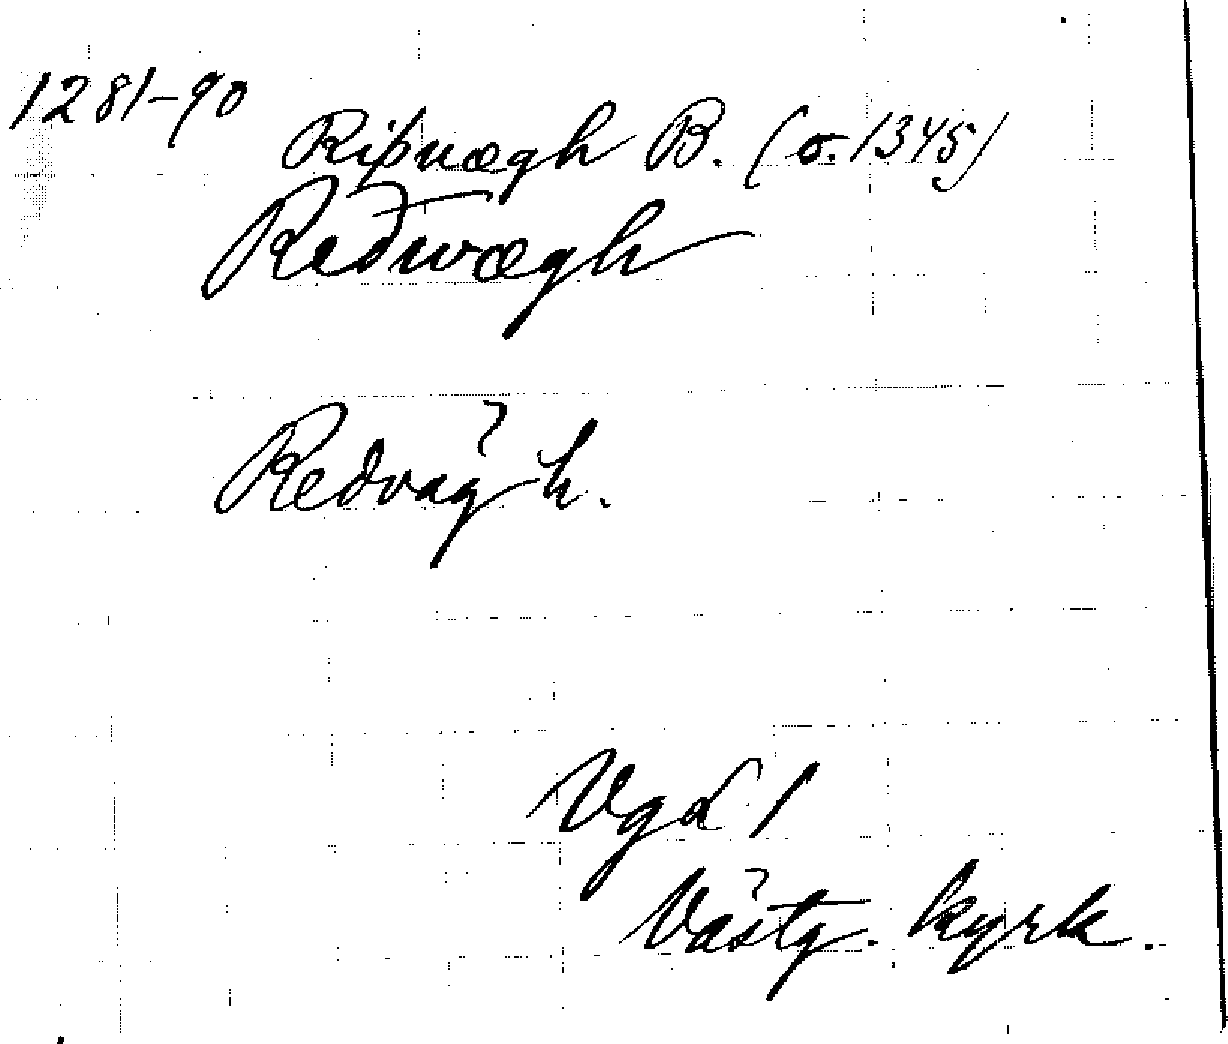 1281-90
Riþuægh B. (o. 1345)
Reðwægh
Redvägh.
VgL I
Västg. kyrk.